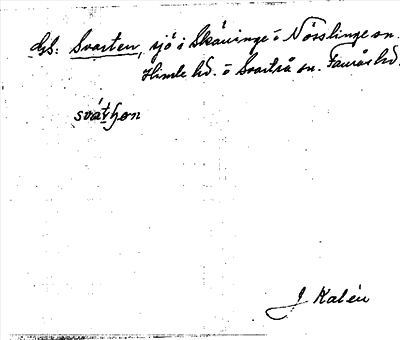 GS: Svarten, sjö i Skäringe i Nösslinge sn.
Himle hd. o Svartrå sn. Faurås hd.
sváthen
J Kalén